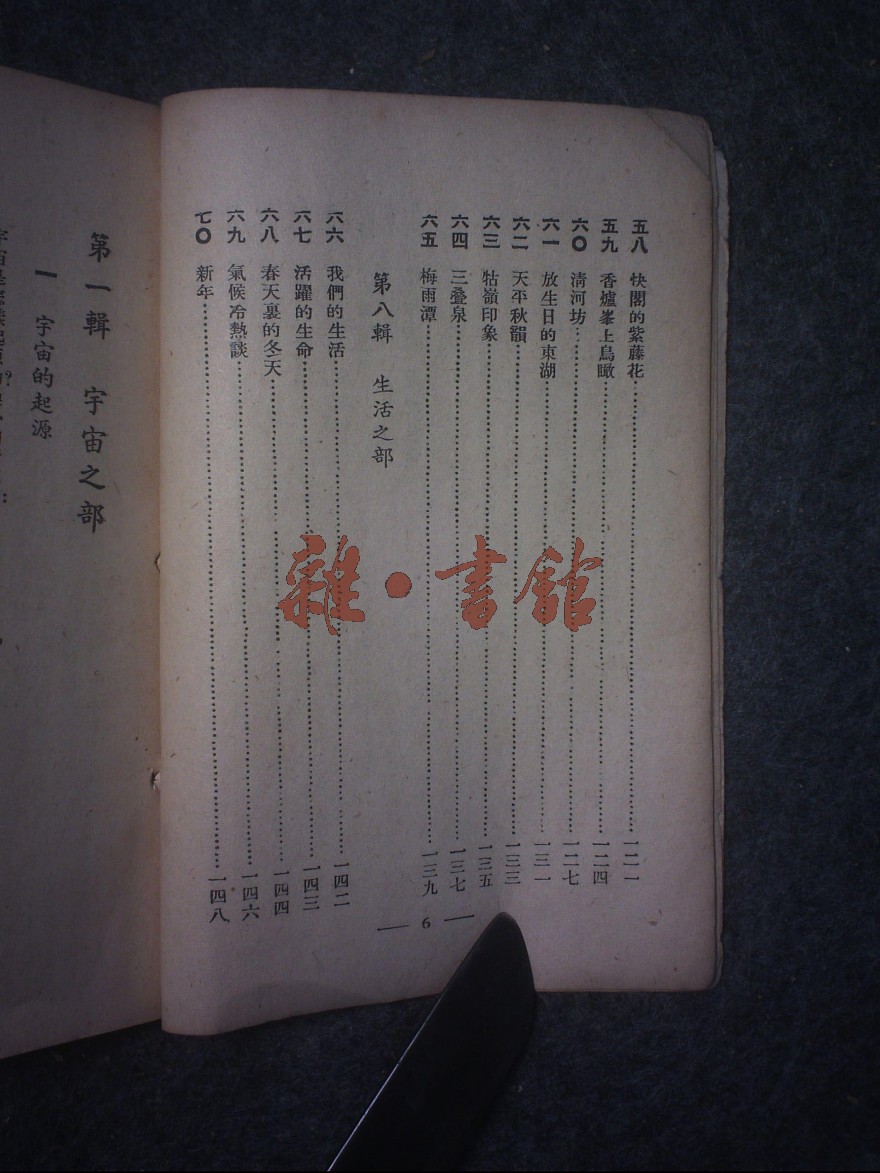 五八 快閣的紫藤花……一二一
五九 香爐峯上鳥瞰……一二四
六〇 清河坊……一二七
六一 放生日的東湖……一三一
六二 天平秋韻……一三三
六三 牯嶺印象……一三五
六四 三叠泉……一三七
六五 梅雨潭……一三九
第八輯 生活之部
六六 我們的生活……一四二
六七 活躍的生命……一四三
六八 春天裏的冬天……一四四
六九 氣候冷熱談……一四六
七〇 新年……一四八
— 6 —
第一輯 宇宙之部
一 宇宙的起源
雜·書館